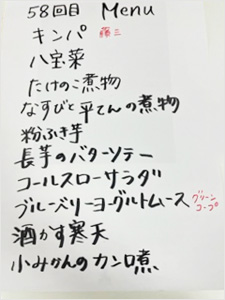 58回目 Menu
キンパ
八宝菜
たけのこ煮物
なすびと平てんの煮物
粉ふき芋
長芋のバターソテー
コールスローサラダ
ブルーベリーヨーグルトムース グリーンコープ
酒かす寒天
小みかんのカンロ煮